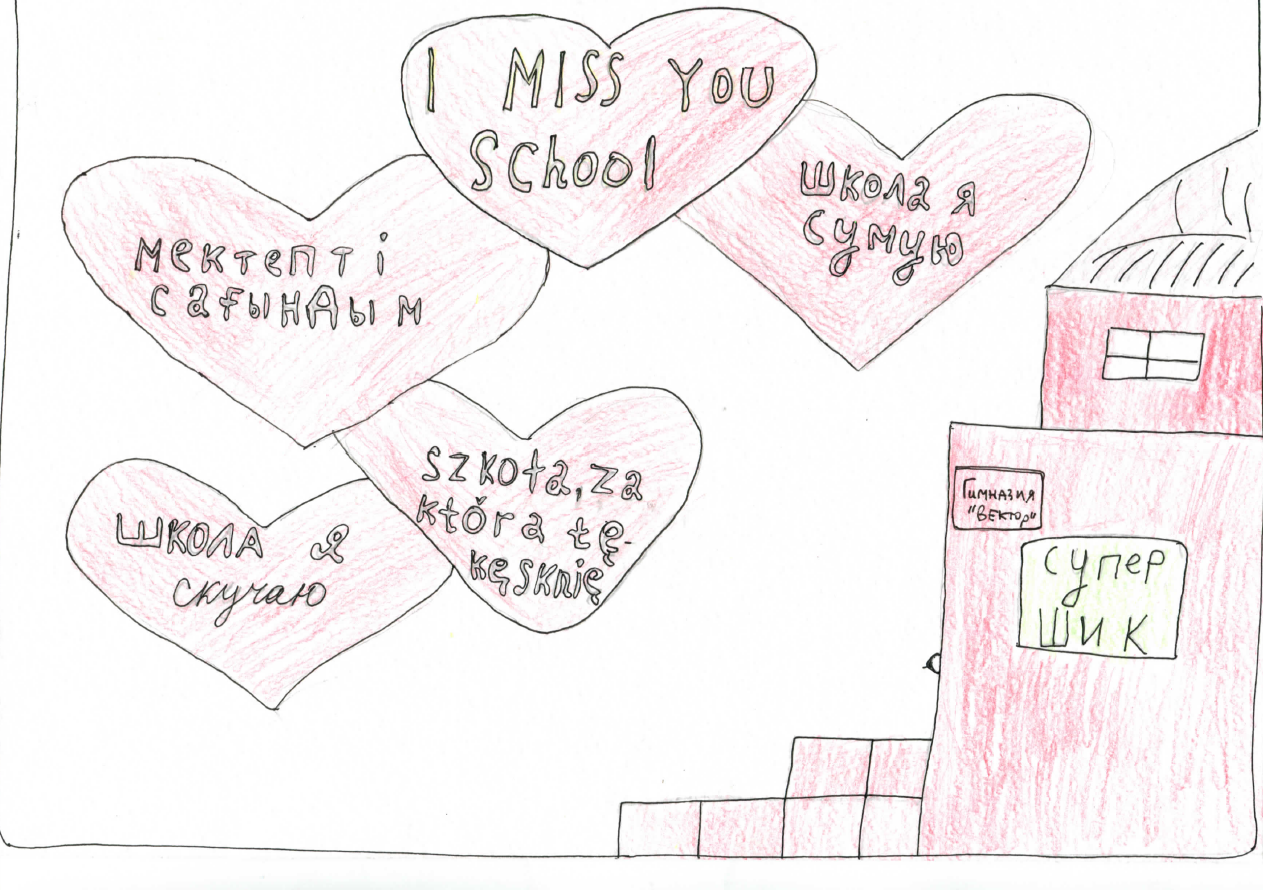 I MISS YOU
SChool
школа я
сумую
мектепті
сағындым
szkoła, za
którą tę-
kęsknię
ШКОЛА Я
скучаю
Гимназия
"Вектор"
супер
ШИК